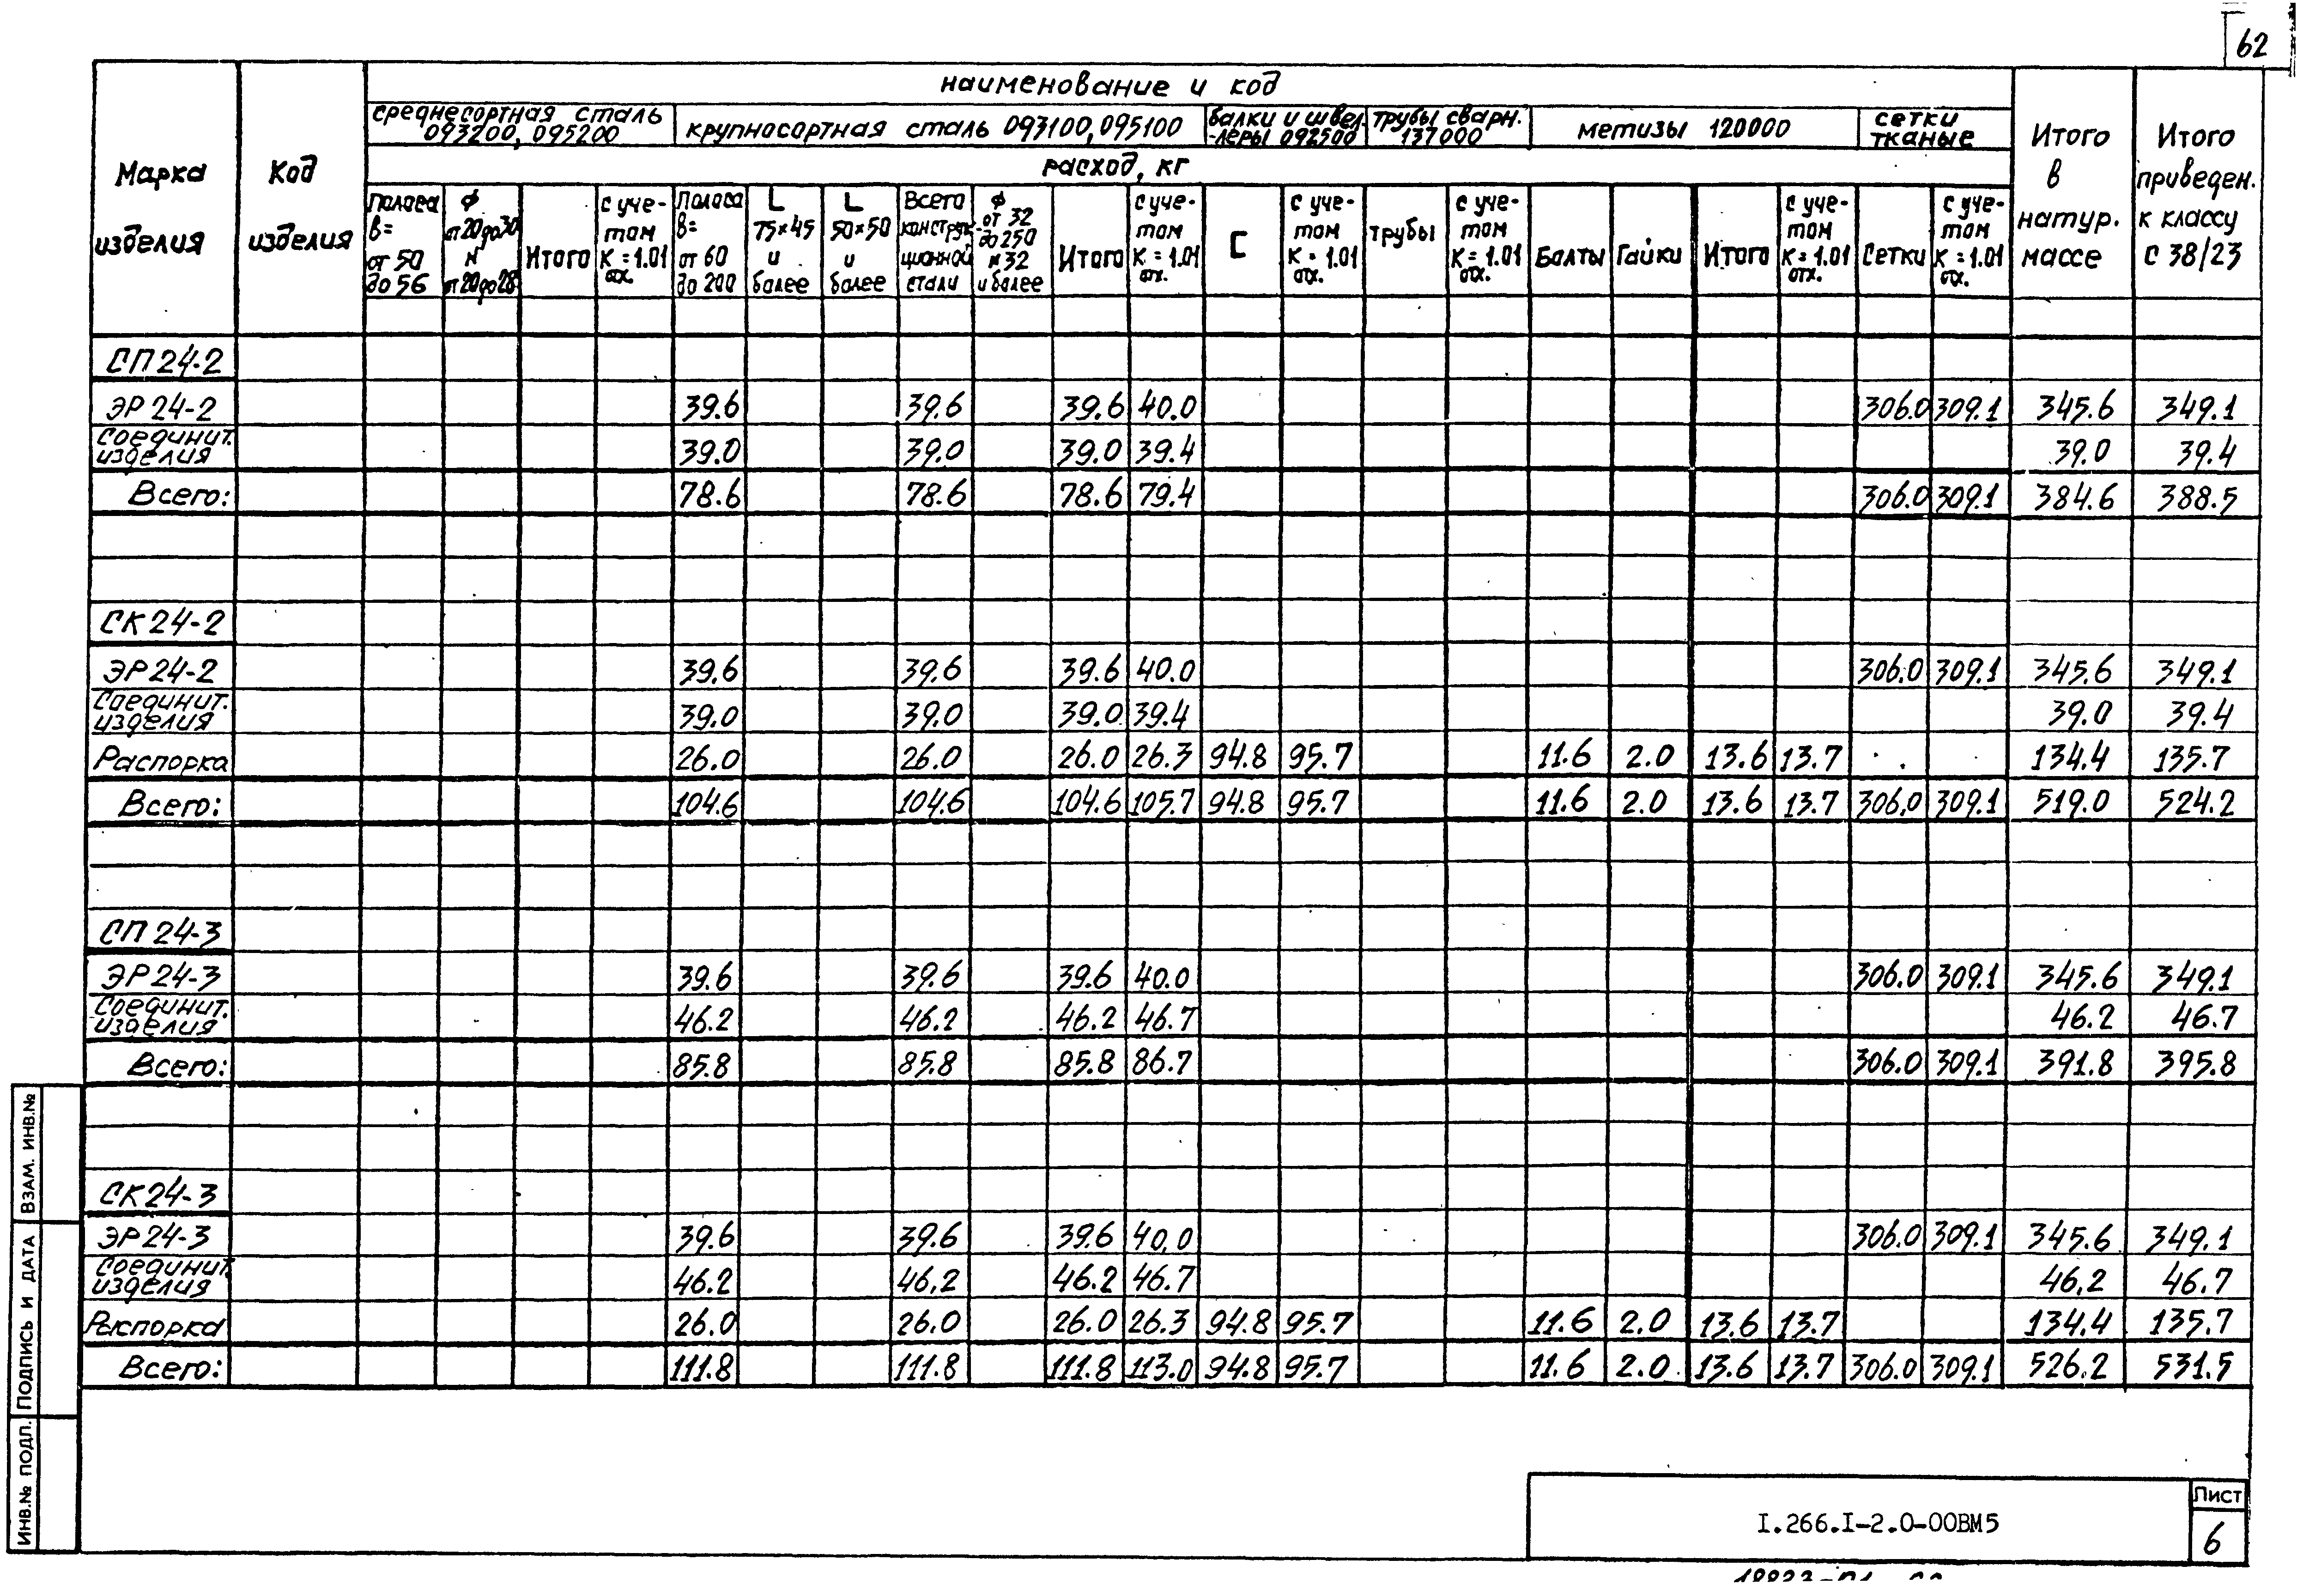 62
наименование и код
Марка изделия
Код изделия
среднесортная сталь 093200, 095200
крупносортная сталь 093100, 095100
балки и швел-леры 092500
трубы сварн. 137000
метизы 120000
сетки тканые
Итого в натур. массе
Итого приведен. к классу С 38/23
расход, кг
полоса в= от 50 до 56
ф от 20 до 30 и от 20 до 28
Итого
с учетом К=1.01 отх.
Полоса в= от 60 до 200
L 75×45 и более
L 50×50 и более
Всего конструк-ционной стали
ф от 32 до 250 и 32 и более
Итого
с учетом К=1.01 отх.
[
с учетом К=1.01 отх.
трубы
с учетом К=1.01 отх.
Болты
Гайки
Итого
с учетом К=1.01 отх.
Сетки
с учетом К=1.01 отх.
СП 24-2
ЭР 24-2 39.6 39.6 39.6 40.0 306.0 309.1 345.6 349.1
Соединит. изделия 39.0 39.0 39.0 39.4 39.0 39.4
Всего: 78.6 78.6 78.6 79.4 306.0 309.1 384.6 388.5
СК 24-2
ЭР 24-2 39.6 39.6 39.6 40.0 306.0 309.1 345.6 349.1
Соединит. изделия 39.0 39.0 39.0 39.4 39.0 39.4
Распорка 26.0 26.0 26.0 26.3 94.8 95.7 11.6 2.0 13.6 13.7 134.4 135.7
Всего: 104.6 104.6 104.6 105.7 94.8 95.7 11.6 2.0 13.6 13.7 306.0 309.1 519.0 524.2
СП 24-3
ЭР 24-3 39.6 39.6 39.6 40.0 306.0 309.1 345.6 349.1
Соединит. изделия 46.2 46.2 46.2 46.7 46.2 46.7
Всего: 85.8 85.8 85.8 86.7 306.0 309.1 391.8 395.8
СК 24-3
ЭР 24-3 39.6 39.6 39.6 40.0 306.0 309.1 345.6 349.1
Соединит. изделия 46.2 46.2 46.2 46.7 46.2 46.7
Распорка 26.0 26.0 26.0 26.3 94.8 95.7 11.6 2.0 13.6 13.7 134.4 135.7
Всего: 111.8 111.8 111.8 113.0 94.8 95.7 11.6 2.0 13.6 13.7 306.0 309.1 526.2 531.5
ИНВ.№ ПОДЛ. ПОДПИСЬ И ДАТА ВЗАМ. ИНВ.№
I.266.I-2.0-00ВМ5
Лист
6